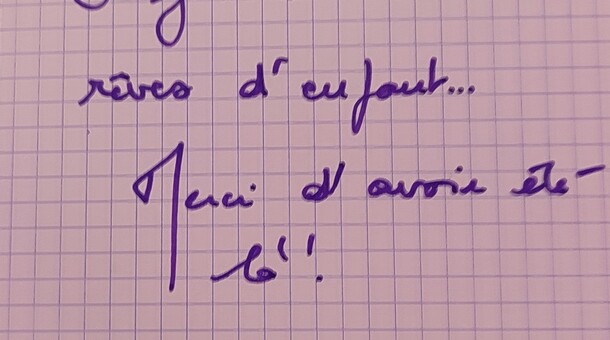 rêves d'enfant...
Merci d'avoir été
là !